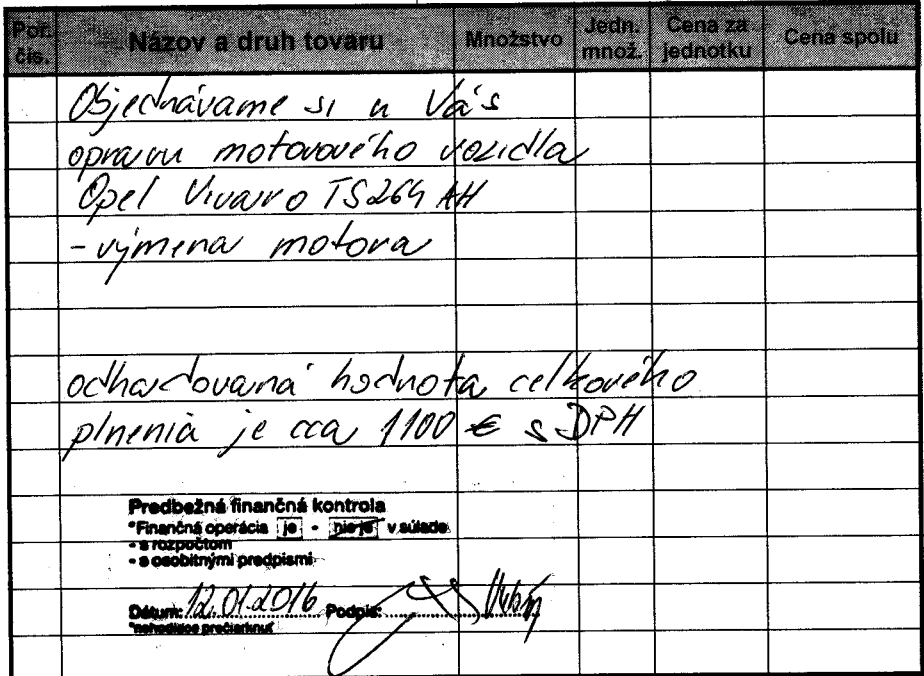 Por. čís. Názov a druh tovaru Množstvo Jedn. množ. Cena za jednotku Cena spolu
Objednávame si u Vás
opravu motorového vozidla
Opel Vivaro TS264 AH
- výmena motora
odhadovaná hodnota celkového
plnenia je cca 1100 € s DPH
Predbežná finančná kontrola
*Finančná operácia je - nie je v súlade
- s rozpočtom
- s osobitnými predpismi
Dátum: 12.01.2016 Podpis:
*nehodiace prečiarknuť